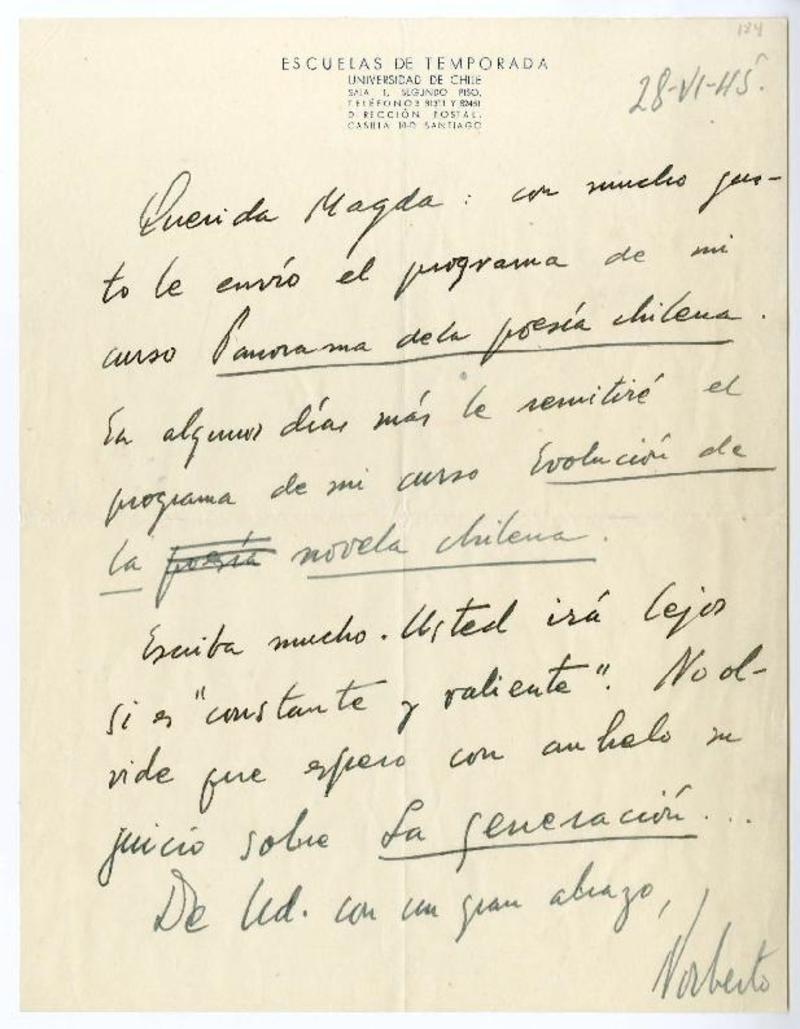 184
ESCUELAS DE TEMPORADA
UNIVERSIDAD DE CHILE
SALA 1, SEGUNDO PISO,
TELÉFONOS Y 82461
DIRECCIÓN POSTAL:
CASILLA 10-D SANTIAGO
28-VI-45.
Querida Magda: con mucho gus-
to le envío el programa de mi
curso Panorama de la poesía chilena.
En algunos días más le remitiré el
programa de mi curso Evolución de
la poesía novela chilena.
Escriba mucho. Usted irá lejos
si es "constante y valiente". No ol-
vide que espero con anhelo su
juicio sobre La generación...
De Ud. con un gran abrazo,
Norberto